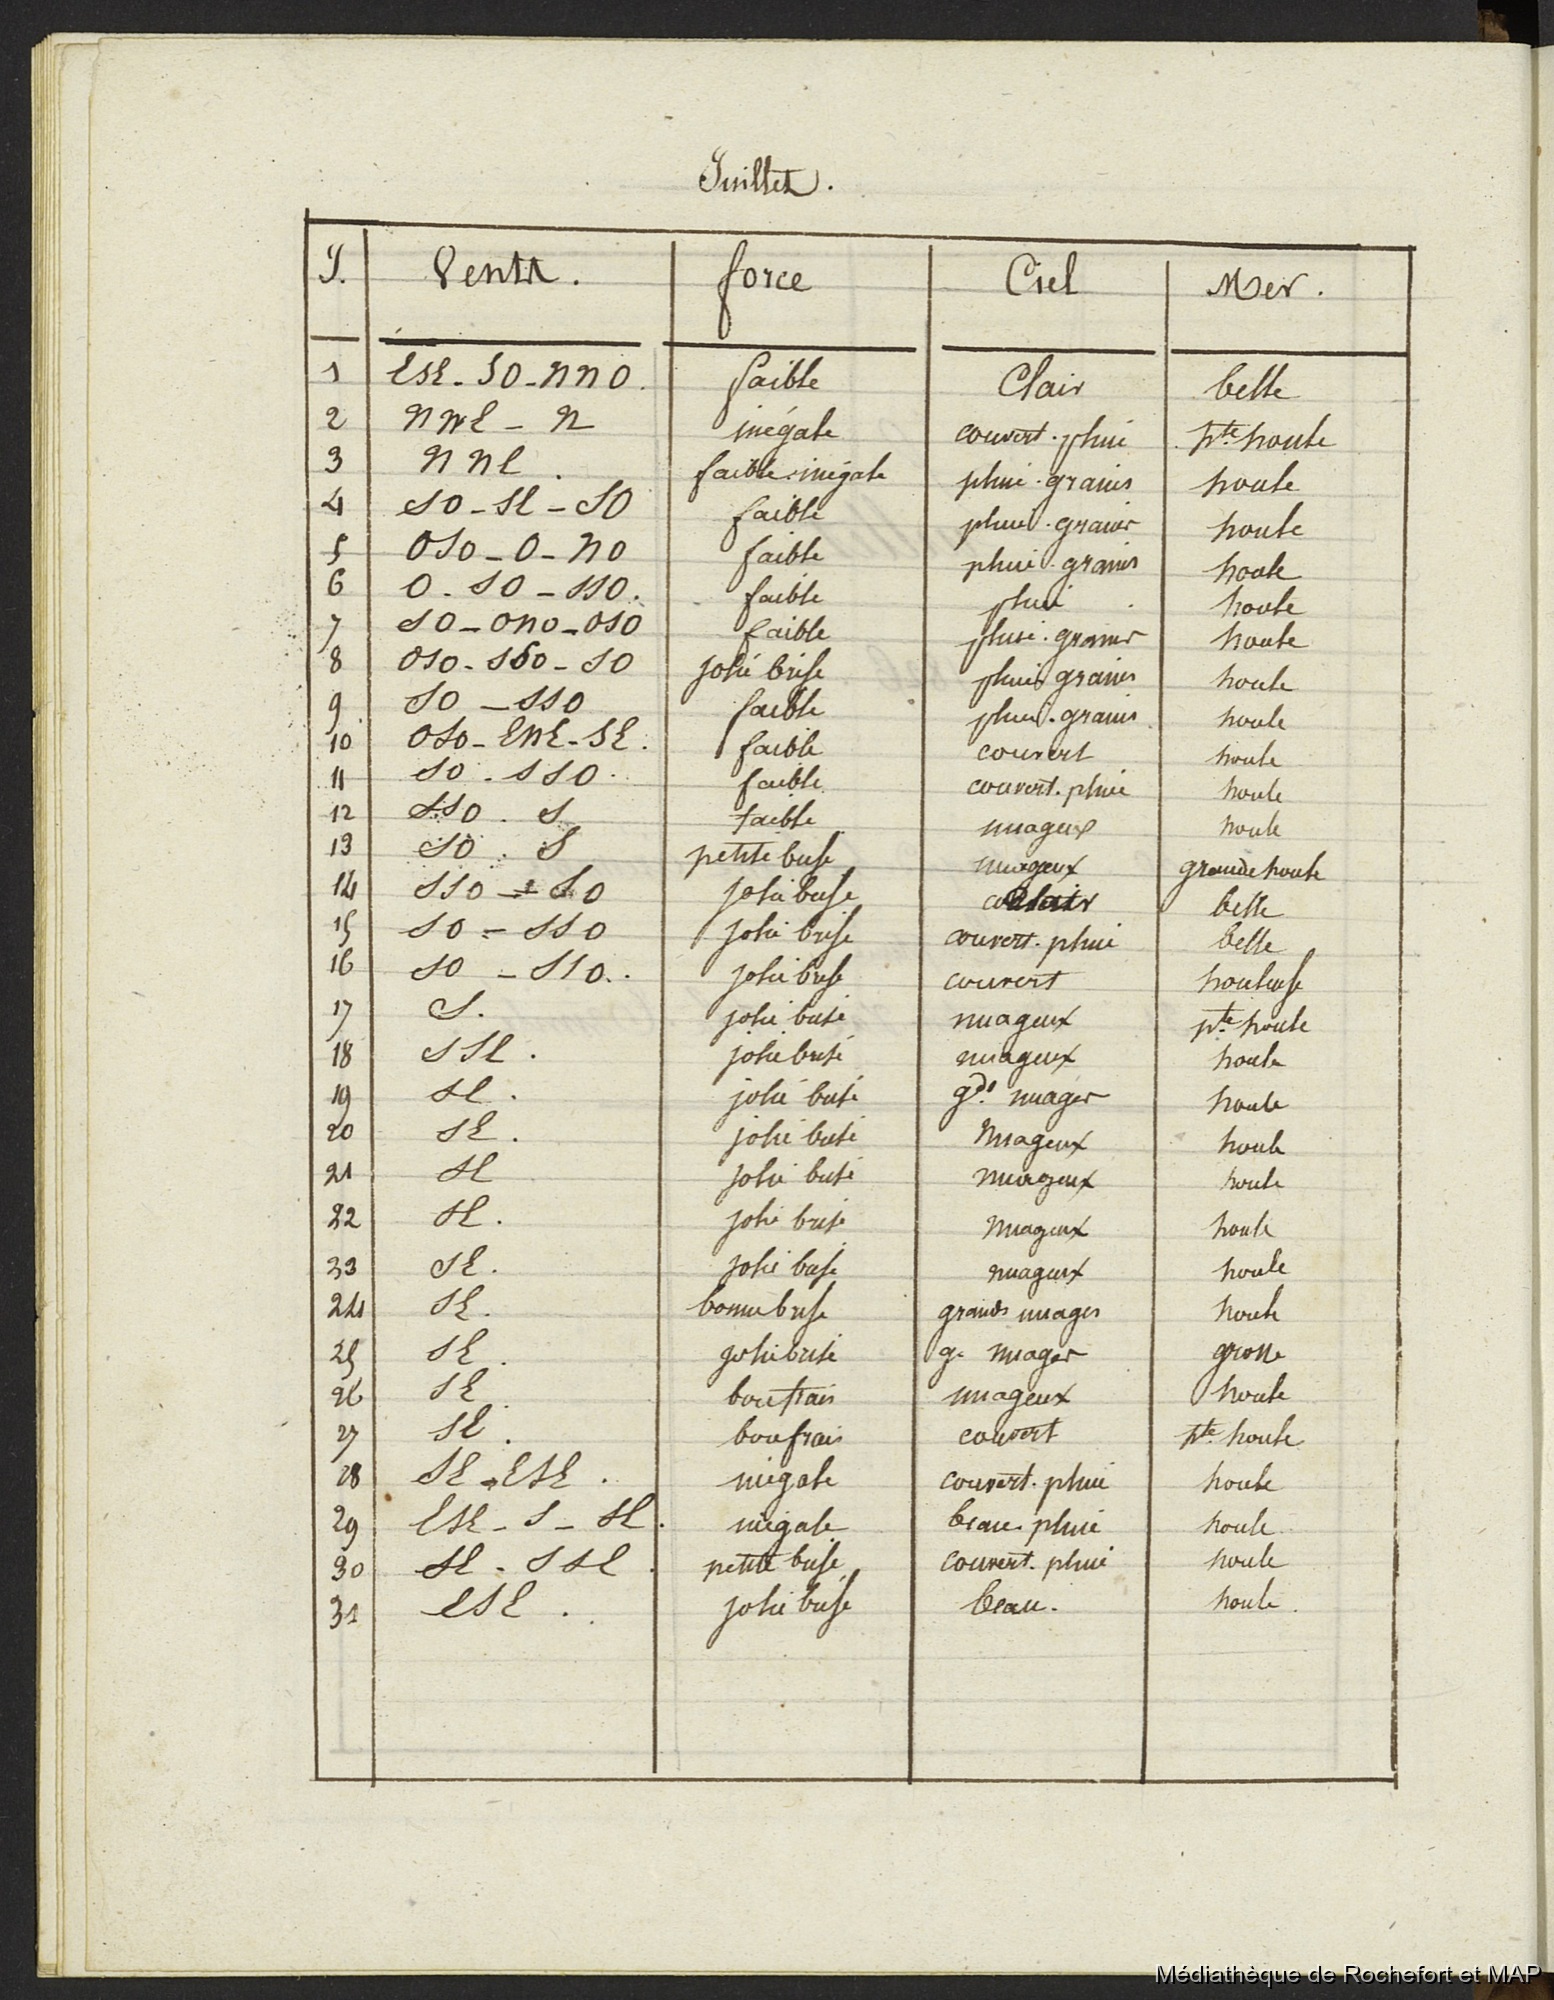 Juillet.
J. Vents. force Ciel Mer.
1 ESE - SO - NNO. faible Clair belle
2 NNE - N inégale couvert. pluie pte houle
3 NNE. faible. inégale pluie. grains houle
4 SO - SE - SO faible pluie. grains houle
5 OSO - O - NO faible pluie. grains houle
6 O. SO - SSO. faible pluie. houle
7 SO - ONO - OSO faible pluie. grains houle
8 OSO - SSO - SO jolie brise pluie. grains houle
9 SO - SSO faible pluie. grains houle
10 OSO - ENE - SE. faible couvert houle
11 SO. SSO. faible couvert. pluie houle
12 SSO. S faible nuageux houle
13 SO. S petite brise nuageux grande houle
14 SSO - SO jolie brise clair belle
15 SO - SSO jolie brise couvert. pluie belle
16 SO - SSO.. jolie brise couvert houleuse
17 S. jolie brise nuageux pte houle
18 SSE. jolie brise nuageux houle
19 SE. jolie brise gds nuages houle
20 SE. jolie brise Nuageux houle
21 SE jolie brise nuageux houle
22 SE. jolie brise nuageux houle
23 SE. jolie brise nuageux houle
24 SE. bonne brise grands nuages houle
25 SE. jolie brise g. nuages grosse
26 SE. bon frais nuageux houle
27 SE. bon frais couvert pte houle
28 SE - ESE. inégale couvert. pluie houle
29 ESE - S - SE. inégale beau. pluie houle
30 SE - SSE. petite brise couvert. pluie houle
31 ESE.. jolie brise beau. houle.
Médiathèque de Rochefort et MAP